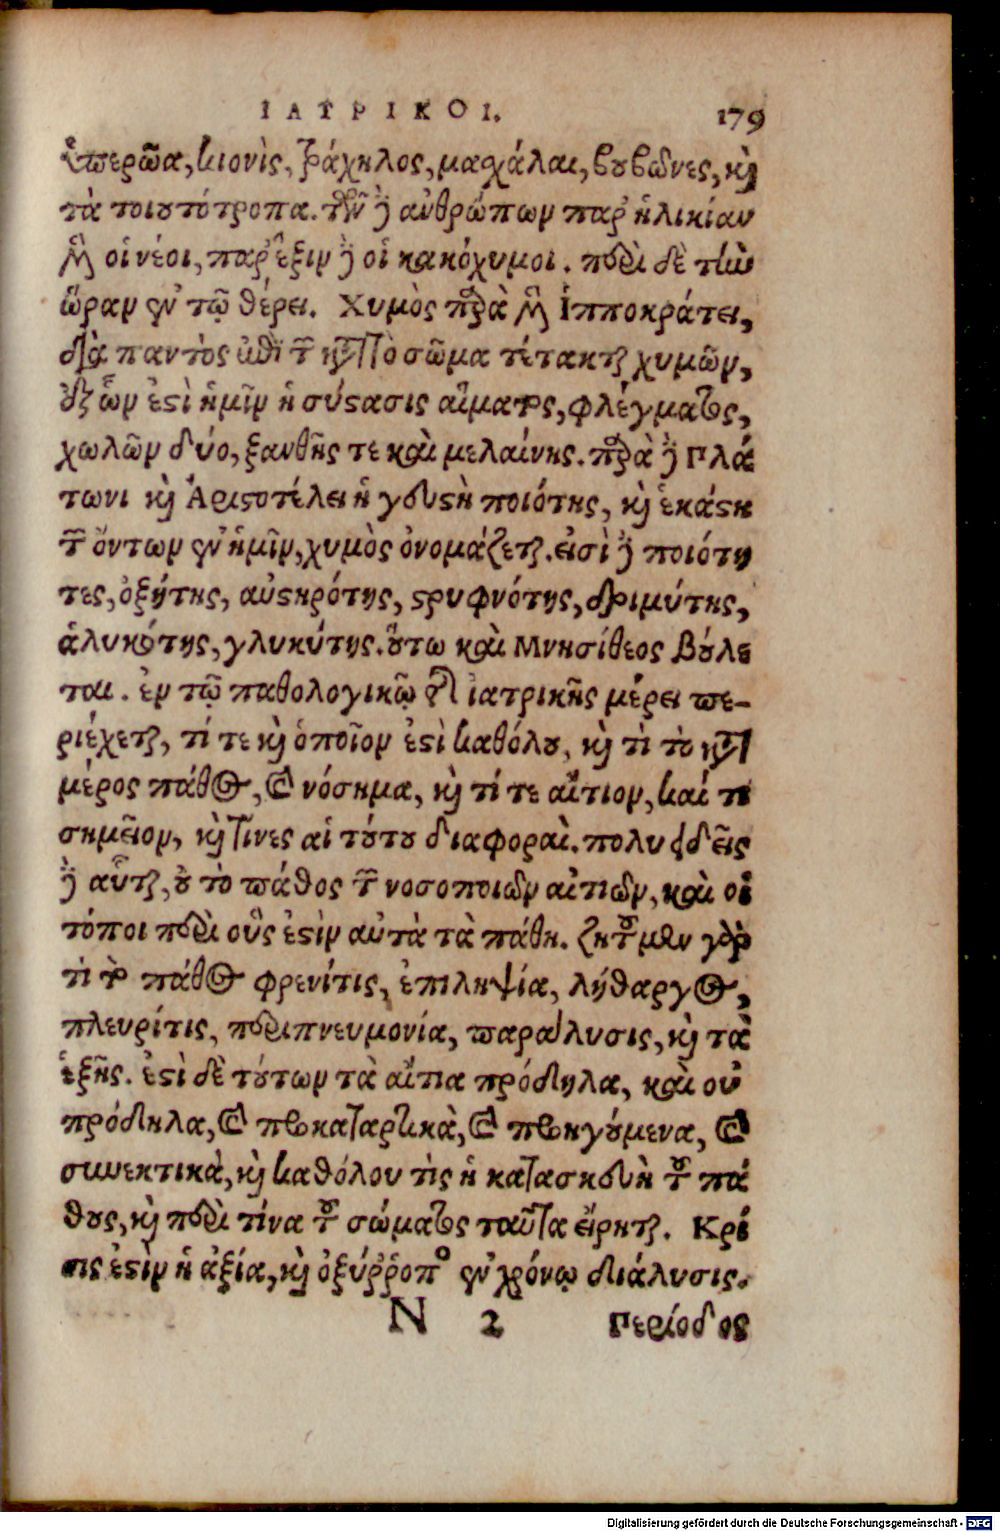 ΙΑΤΡΙΚΟΙ. 179
ὑπερῶα, κιονὶς, τράχηλος, μαχάλαι, βουβῶνες, καὶ
τὰ τοιουτότροπα. τῶν δὲ ἀνθρώπων παρ' ἡλικίαν
μὲν οἱ νέοι, παρ' ἕξιν δὲ οἱ κακόχυμοι. περὶ δὲ τὴν
ὥραν ἐν τῷ θέρει. Χυμὸς παρὰ μὲν Ἱπποκράτει,
διὰ παντὸς ἐπὶ τῶν κατὰ τὸ σῶμα τέτακται χυμῶν,
ἐξ ὧν ἐστὶ ἡμῖν ἡ σύστασις αἵματος, φλέγματος,
χωλῶν δύο, ξανθῆς τε καὶ μελαίνης. παρὰ δὲ Πλά
τωνι καὶ Ἀριστοτέλει ἡ γευστὴ ποιότης, καὶ ἑκάστη
τῶν ὄντων ἐν ἡμῖν, χυμὸς ὀνομάζεται. εἰσὶ δὲ ποιότη
τες, ὀξύτης, αὐστηρότης, στρυφνότης, δριμύτης,
ἁλυκότης, γλυκύτης. οὕτω καὶ Μνησίθεος βούλε
ται. ἐν τῷ παθολογικῷ τῆς ἰατρικῆς μέρει πε-
ριέχεται, τί τε καὶ ὁποῖον ἐστὶ καθόλου, καὶ τὶ τὸ κατὰ
μέρος πάθος, καὶ νόσημα, καὶ τί τε αἴτιον, καί τι
σημεῖον, καὶ τίνες αἱ τούτου διαφοραὶ. πολυειδεῖς
δὲ αὗται, οὐ τὸ πάθος τῶν νοσοποιῶν αἰτιῶν, καὶ οἱ
τόποι περὶ οὓς ἐστὶν αὐτὰ τὰ πάθη. ζητοῦμεν γὰρ
τὶ τὸ πάθος φρενίτις, ἐπιληψία, λήθαργος,
πλευρίτις, περιπνευμονία, παράλυσις, καὶ τὰ
ἑξῆς. ἐστὶ δὲ τούτων τὰ αἴτια πρόδηλα, καὶ οὐ
πρόδηλα, καὶ προκαταρτικὰ, καὶ προηγούμενα, καὶ
συνεκτικὰ, καὶ καθόλου τὶς ἡ κατασκευὴ τοῦ πά
θους, καὶ περὶ τίνα τοῦ σώματος ταῦτα εἴρηται. Κρί
σις ἐστὶν ἡ ἀξία, καὶ ὀξύῤῥοπος ἐν χρόνῳ διάλυσις.
N 2 Περίοδος
Digitalisierung gefördert durch die Deutsche Forschungsgemeinschaft - DFG